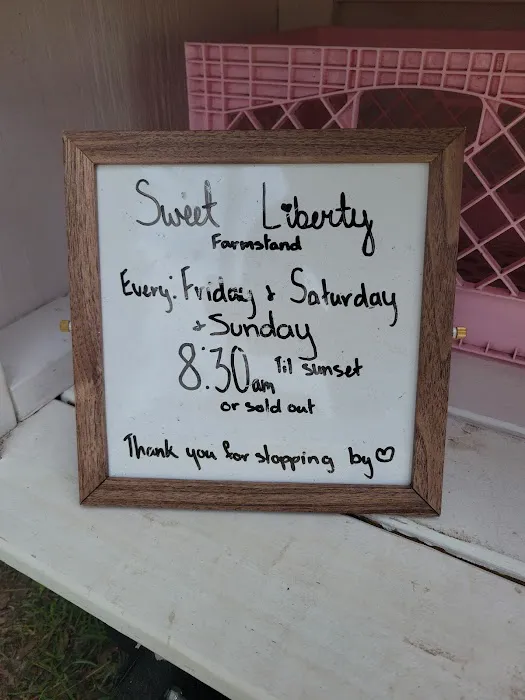 Sweet Liberty
Farmstand
Every: Friday & Saturday
& Sunday
8:30am Til sunset
or sold out
Thank you for stopping by♡